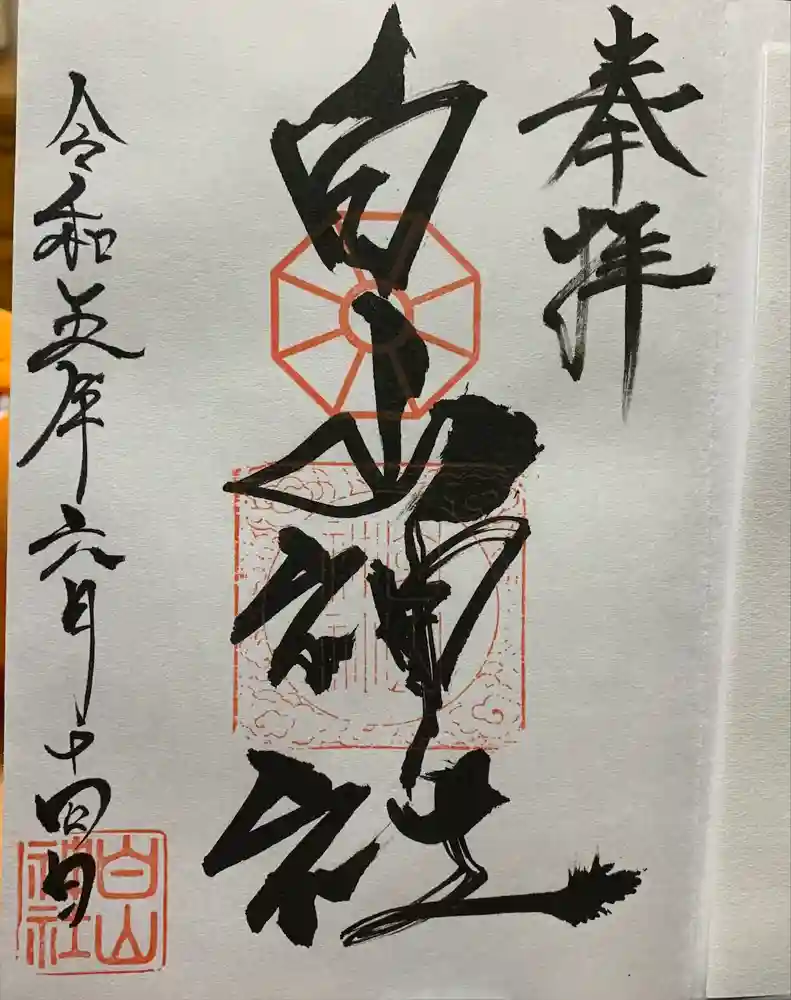 奉拝
白山神社
令和五年六月十四日
白山
神社